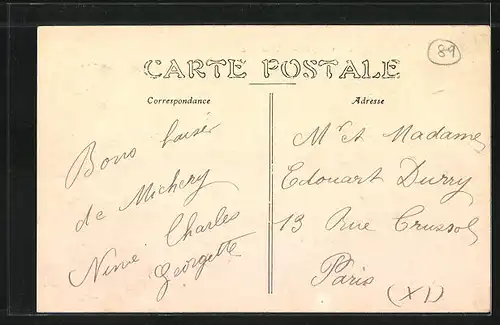 89
CARTE POSTALE
Correspondance
Adresse
Bons baiser
de Michery
Charles
Georgette
Mr et Madame
Edouart Durry
13 Rue Crussol
Paris (XI)